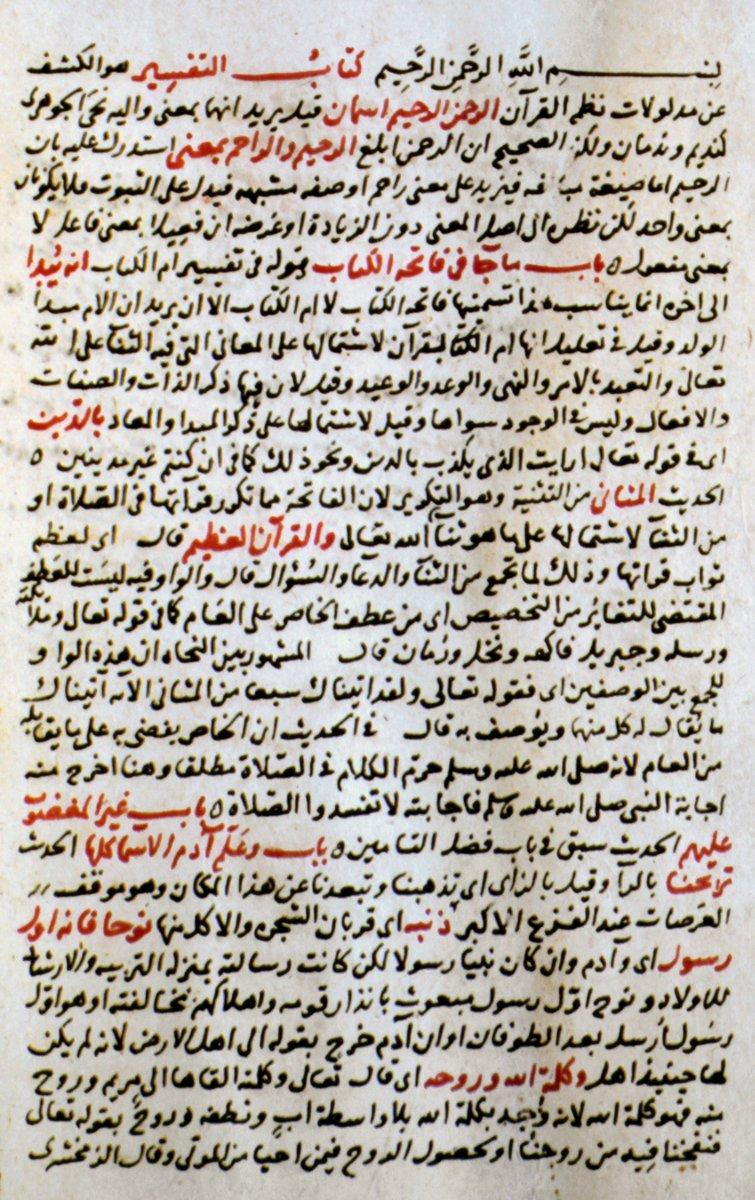 بسم الله الرَّحْمٰنِ الرَّحِيمِ كتابُ التفسير هو الكشف
عن مدلولات نظم القرآن الرحمن الرحيم اسمان قيل يريد انهما بمعنى واليه نحى الجوهرى
كنديم وندمان ولكن الصحيح ان الرحمن ابلغ الرحيم والراحم بمعنى استدرك عليه بان
الرحيم اما صيغة مبالغه فيزيد على معنى راحم او صفه مشبهه فيدل على الثبوت فلا يكونان
بمعنى واحد لكن نظر الى اصل المعنى دون الزيادة او غرضه ان فعيلا بمعنى فاعل لا
بمعنى مفعول ه باب ما جآ فى فاتحه الكتاب قوله فى تفسير ام الكتاب انه يُبدا
الى اخره انما يناسب هذا تسميتها فاتحه الكتاب لا ام الكتاب الا ان يريد ان الام مبدا
الولد وقيل فى تعليل انها ام الكتاب لقرآن لاشتمالها على المعانى التى فيه الثنآ على الله
تعالى والتعبد بالامر والنهى والوعد والوعيد وقيل لان فيها ذكر الذات والصفات
والافعال وليس فى الوجود سواها وقيل لاشتمالها على ذكر المبدا والمعاد بالدّين
اى فى قوله تعالى ارايت الذى يكذب بالدين ونحو ذلك كما فى ان كنتم غير مدينين ه
الحديث المثانى من التثنية وهو التكرير لان الفاتحة مما تكرر قرآتها فى الصّلاة او
من الثنآ لاشتمالها على ما هو ثنآ الله تعالى والقرآن العظيم قال اى لعظم
ثواب قراتها وذلك لما تجمع من الثنآ والدعآ والسُؤال قال والواو فيه ليست للعطف
المقتضى للتغاير من التخصيص اى من عطف الخاص على العام كما فى قوله تعالى وملائكته
ورسله وجبريل فاكهه ونخل ورمان قال المشهور بين النحاه ان هذه الواو
للجمع بين الوصفين اى فقوله تعالى ولقد اتيناك سبعا من المثانى الآيه آتيناك
ما يُقال له كل منها ويُوصف به قال فى الحديث ان الخاص يقضى به على ما يقابله
من العام لانه صلى الله عليه وسلم حرم الكلام فى الصّلاة مطلقا وهنا اخرج منه
اجابة النبى صلى الله عليه وسلم فاجابته لا تفسد والصّلاة ه باب غير المغضوب
عليهم الحديث سبق فى باب فضل التامين ه باب وعَلّم آدم الاسما كلها الحديث
تريحنا بالرآ وقيل بالزاى اى تذهبنا وتبعدنا عن هذا المكان وهو موقف
العرصات عند الفزع الاكبر ذنبه اى قربان الشجره والاكل منها نوحا فانه اول
رسول اى وآدم وان كان نبيا رسولا لكن كانت رسالته بمنزله التربيه والارشاد
للاولاد ونوح اوّل رسول مبعوث بانذار قومه واهلاكهم نخالفته او هو اوّل
رسُول اُرسل بعد الطوفان او ان آدم خرج بقوله الى اهل الارض لانه لم يكن
لها حينيذ اهل وكلمة الله وروحه اى قال تعالى وكلمة القاها الى مريم وروح
منه فهو كلمة الله لانه وُجد بكلمة الله بلا واسطة اب ونطفه وروحٌ بقوله تعالى
فنفخنا فيه من روحنا او بحصول الروح فيمن احيا من الموتى وقال الزمخشرى